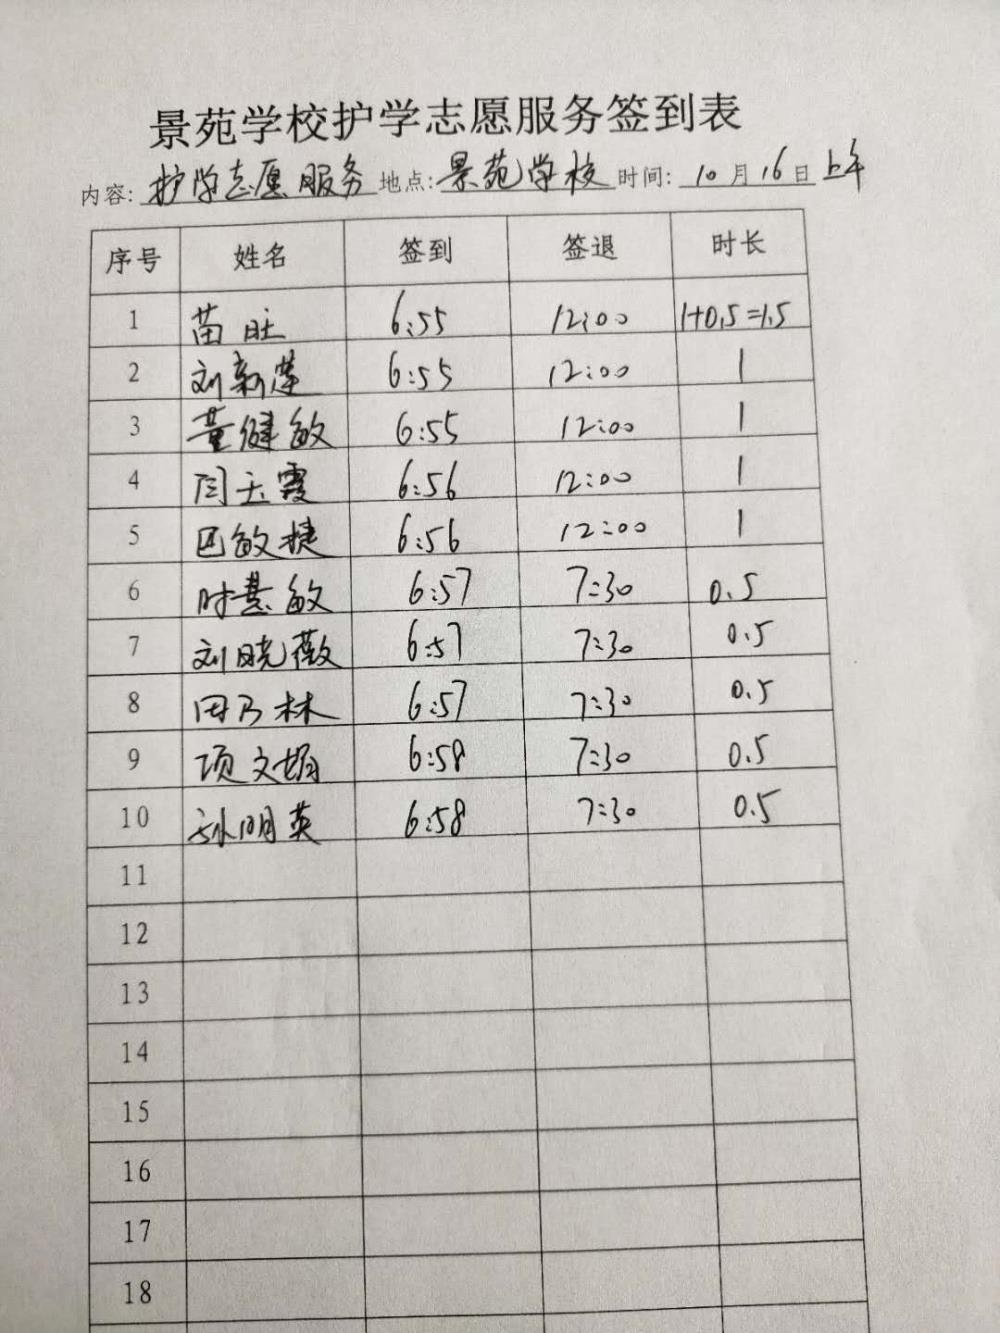 景苑学校护学志愿服务签到表
内容: 护学志愿服务 地点: 景苑学校 时间: 10月16日上午
序号 姓名 签到 签退 时长
1 苗旺 6:55 12:00 1+0.5=1.5
2 刘新莲 6:55 12:00 1
3 董健敏 6:55 12:00 1
4 闫玉霞 6:56 12:00 1
5 巴敏捷 6:56 12:00 1
6 时慧敏 6:57 7:30 0.5
7 刘晓薇 6:57 7:30 0.5
8 田乃林 6:57 7:30 0.5
9 项文娟 6:58 7:30 0.5
10 孙明英 6:58 7:30 0.5
11
12
13
14
15
16
17
18